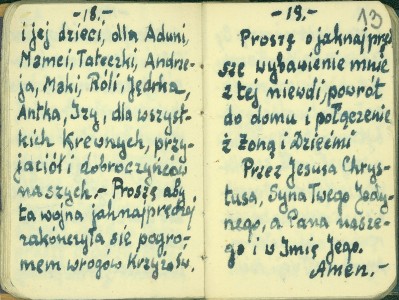 -18.-
i jej dzieci, dla Aduni,
Mamci, Tateczki, Andrze-
ja, Maki, Róli, Jędrka,
Antka, Izy, dla wszyst-
kich Krewnych, przy-
jaciół i dobroczyńców
naszych.- Proszę aby
ta wojna jaknajprędzej
zakończyła się pogro-
mem wrogów Krzyża Św.
-19.-
13
Proszę o jaknajprę
sze wybawienie mnie
z tej niewoli, powrót
do domu i połączenie
z Żoną i Dziećmi
Przez Jezusa Chrys-
tusa, Syna Twego Jedy-
nego, a Pana nasze-
go i w Imię Jego.
Amen.-